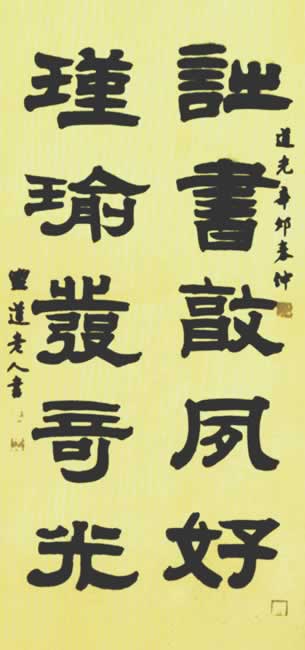 道光辛卯春仲
詩書敦夙好
瑾瑜發奇光
豐道老人書